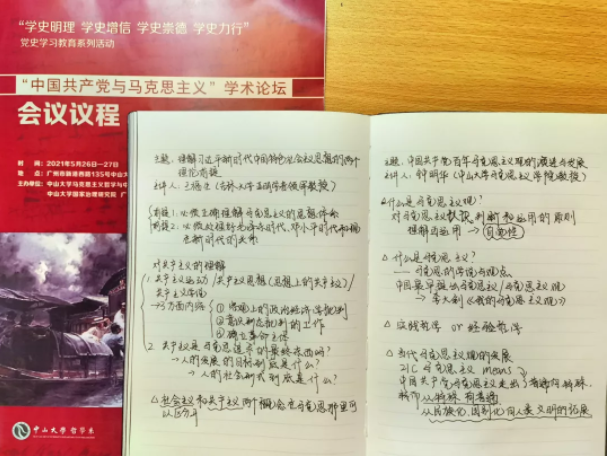 “学史明理 学史增信 学史崇德 学史力行”
党史学习教育系列活动
“中国共产党与马克思主义”学术论坛
会议议程
时 间：2021年5月26日—27日
地 点：广州市新港西路135号中山大
主办单位：中山大学马克思主义哲学与中
中山大学国家治理研究院 广
中山大学 哲学系
主题：理解习近平新时代中国特色社会主义思想的两个
理论前提
主讲人：王福生（吉林大学 哲学 教授）
前提1：必须正确理解马克思主义的思想
前提2：必须处理好 时代、邓小平时代和
新时代的关系
对共产主义的理解
1 共产主义运动/共产主义思想（思想上的共产主义）/
共产主义
→3方面内涵
① 上的政治经济学批判
② 意识形态批判的工作
③ 革命主体
2 共产主义是马克思追求的最终东西吗？
→人的发展的目标到底是什么？
→人的社会形式到底是什么？
△ 社会主义和共产主义两个概念在马克思那里可
以区分
主题：中国共产党百年马克思主义观的演进与发展
主讲人：钟明华（中山大学马克思主义学院教授）
△什么是马克思主义观？
对马克思主义 判断和运用的原则
理解与运用→自觉性
△ 什么是马克思主义？
——马克思的学说与观点
中国最早提出马克思主义/马克思主义观
→李大钊《我的马克思主义观》
△ 实践哲学 or 经验哲学
△ 当代马克思主义观的发展
21C 马克思主义 means
中国共产党马克思主义走出了普遍向特殊，
转向从特殊向普遍
从民族化、国别化向人类文明的拓展